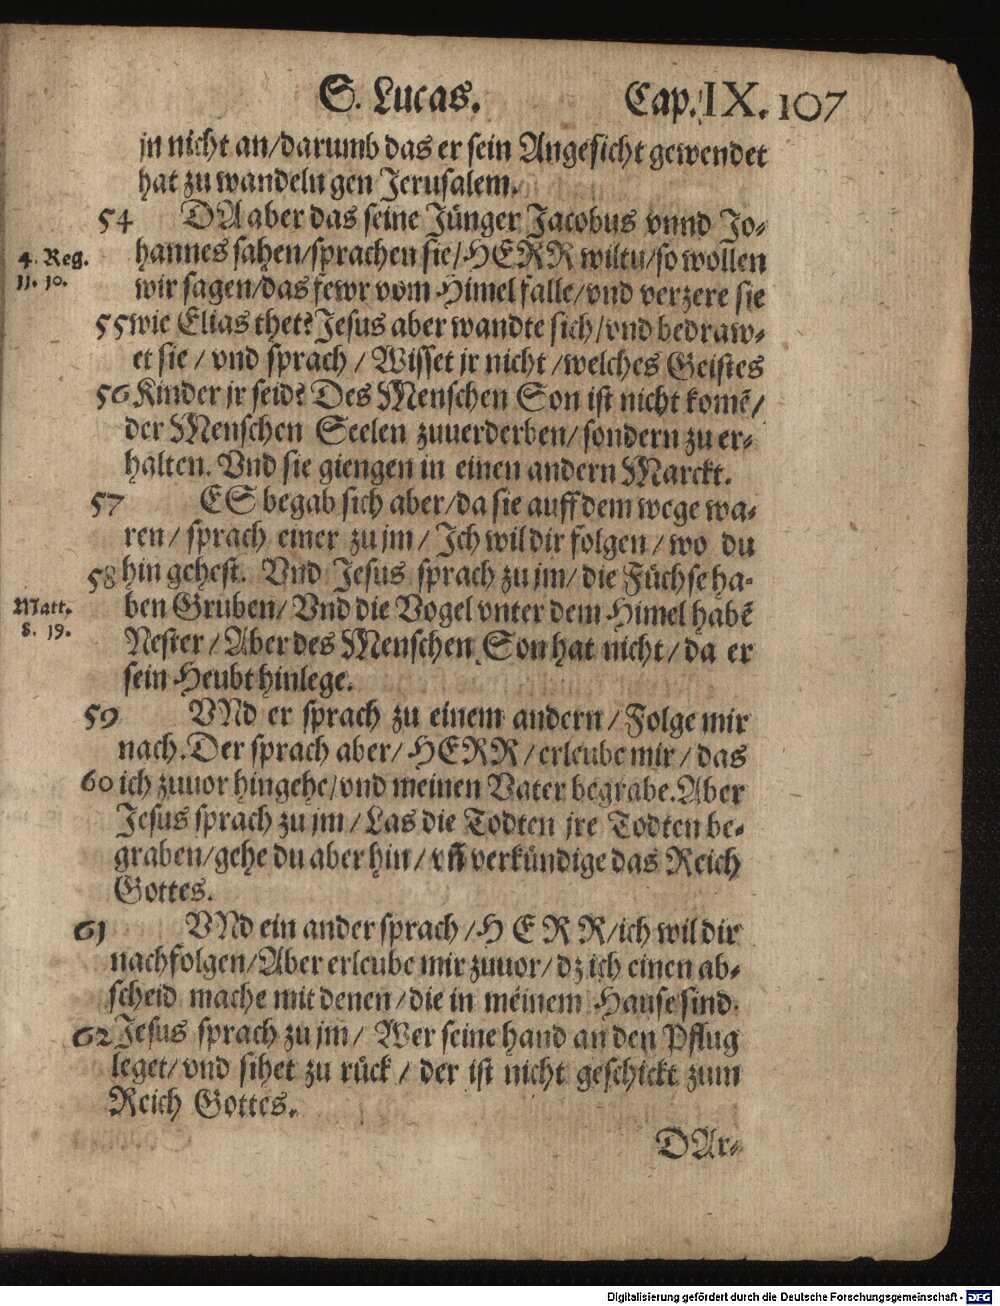 S. Lucas. Cap. IX. 107
jn nicht an/darumb das er sein Angesicht gewendet
hat zu wandeln gen Jerusalem.
54 DA aber das seine Jünger Jacobus vnnd Jo-
4. Reg. hannes sahen/sprachen sie/HERR wiltu/so wöllen
11. 10. wir sagen/das fewr vom Himel falle/vnd verzere sie
55 wie Elias thet? Jesus aber wandte sich/vnd bedraw-
et sie / vnd sprach / Wisset jr nicht /welches Geistes
56 Kinder jr seid? Des Menschen Son ist nicht komē/
der Menschen Seelen zuuerderben/sondern zu er-
halten. Vnd sie giengen in einen andern Marckt.
57 ES begab sich aber/da sie auff dem wege wa-
ren/ sprach einer zu jm / Ich wil dir folgen / wo du
58 hin gehest. Vnd Jesus sprach zu jm/ die Füchse ha-
Matt. ben Gruben/ Vnd die Vogel vnter dem Himel habē
8. 19. Nester / Aber des Menschen Son hat nicht / da er
sein Heubt hinlege.
59 VNd er sprach zu einem andern / Folge mir
nach. Der sprach aber/ HERR / erleube mir / das
60 ich zuuor hingehe/vnd meinen Vater begrabe. Aber
Jesus sprach zu jm / Las die Todten jre Todten be-
graben/gehe du aber hin / vn̄ verkündige das Reich
Gottes.
61 VNd ein ander sprach /H E R R/ich wil dir
nachfolgen/Aber erleube mir zuuor/ dz ich einen ab-
scheid mache mit denen /die in meinem Hause sind.
62 Jesus sprach zu jm/ Wer seine hand an den Pflug
leget/ vnd sihet zu rück / der ist nicht geschickt zum
Reich Gottes.
DAr-
Digitalisierung gefördert durch die Deutsche Forschungsgemeinschaft - DFG